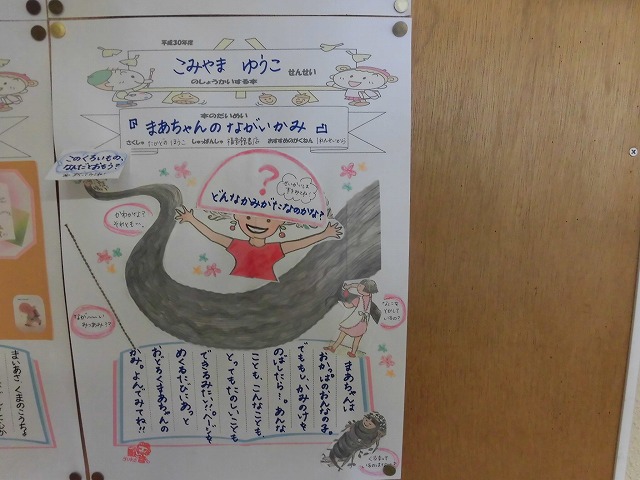 平成30年度
こみやま ゆうこ せんせい
のしょうかいする本
本のだいめい
『 まあちゃんのながいかみ 』
さくしゃ たかどの ほうこ しゅっぱんしゃ 福音館書店 おすすめのがくねん
このくろいもの、
なんだとおもう?
?
どんなかみがたなのかな?
かわかな?
それとも…。
ながーーい
まあちゃんは
おかっぱのおんなのこ。
でももし、かみのけを
のばしたら…。あんな
ことも、こんなことも、
とってもたのしいことも
できるみたい!!ページを
めくるたびにあっと
おどろくまあちゃんの
かみ。よんでみてね!!
まいあさ くまのこうちょ